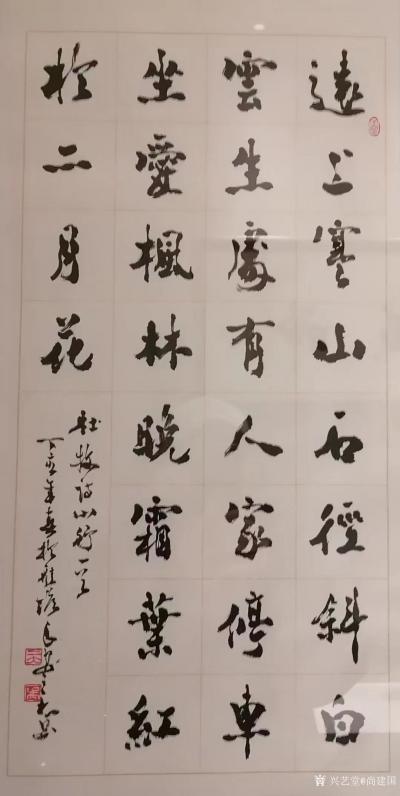 遠上寒山石徑斜白
雲生處有人家停車
坐愛楓林晚霜葉紅
於二月花
杜牧詩山行一首
丁亥年
兴艺堂@尚建国